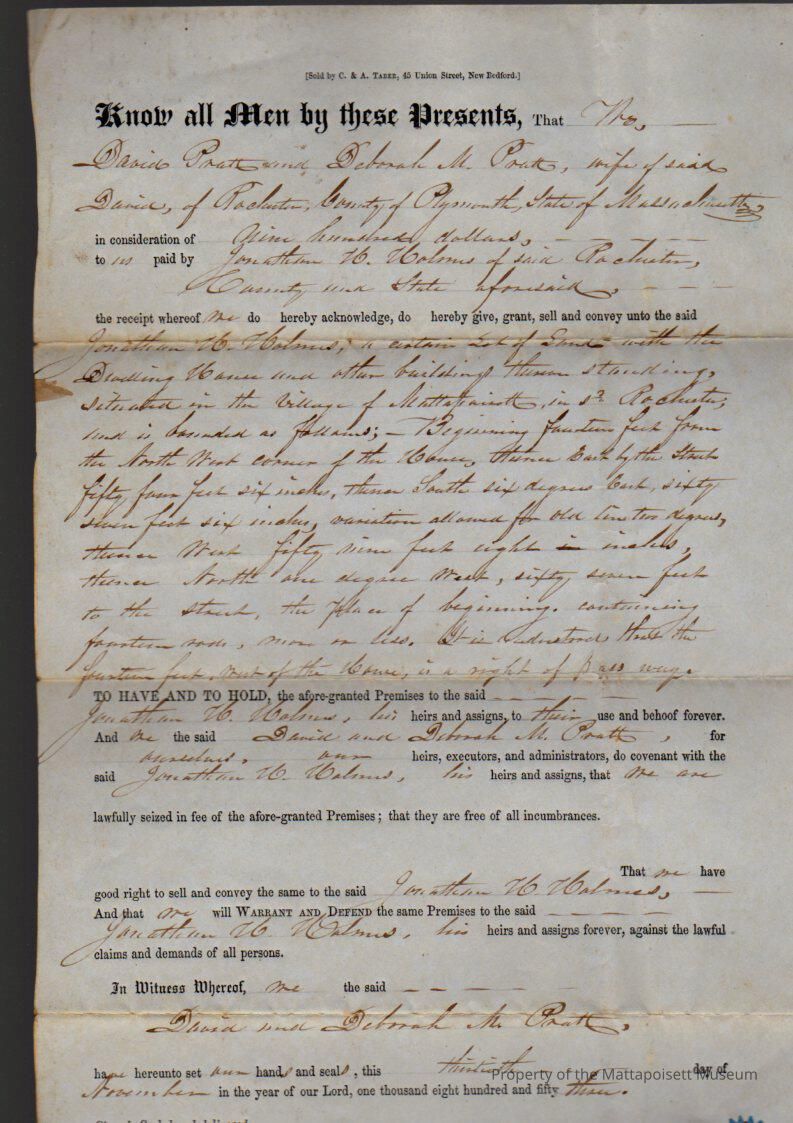 [Sold by C. & A. TABER, 45 Union Street, New Bedford.]
Know all Men by these Presents, That We,
David Pratt and Deborah M. Pratt, wife of said
David, of Rochester, County of Plymouth, State of Massachusetts,
in consideration of nine hundred dollars,
to us paid by Jonathan H. Holmes of said Rochester,
County and State aforesaid,
the receipt whereof we do hereby acknowledge, do hereby give, grant, sell and convey unto the said
Jonathan H. Holmes, a certain Lot of Land with the
Dwelling House and other buildings thereon standing,
situated in the Village of Mattapoisett, in sd Rochester,
and is bounded as follows; – Beginning fourteen feet from
the North West corner of the House, thence East by the Street
fifty four feet six inches, thence South six degrees East, sixty
seven feet six inches, variation allowed for old line two degrees,
thence West fifty nine feet eight inches,
thence North one degree West, sixty seven feet
to the street, the place of beginning. containing
fourteen rods, more or less. It is understood that the
fourteen feet, west of the House, is a right of Pass way.
TO HAVE AND TO HOLD, the afore-granted Premises to the said
Jonathan H. Holmes, his heirs and assigns, to their use and behoof forever.
And we the said David and Deborah M. Pratt, for
ourselves, our heirs, executors, and administrators, do covenant with the
said Jonathan H. Holmes, his heirs and assigns, that we are
lawfully seized in fee of the afore-granted Premises; that they are free of all incumbrances.
That we have
good right to sell and convey the same to the said Jonathan H. Holmes,
And that we will WARRANT AND DEFEND the same Premises to the said
Jonathan H. Holmes, his heirs and assigns forever, against the lawful
claims and demands of all persons.
In Witness Whereof, we the said
David and Deborah M. Pratt,
have hereunto set our hands and seals, this thirtieth day of
November in the year of our Lord, one thousand eight hundred and fifty three.
Property of the Mattapoisett Museum